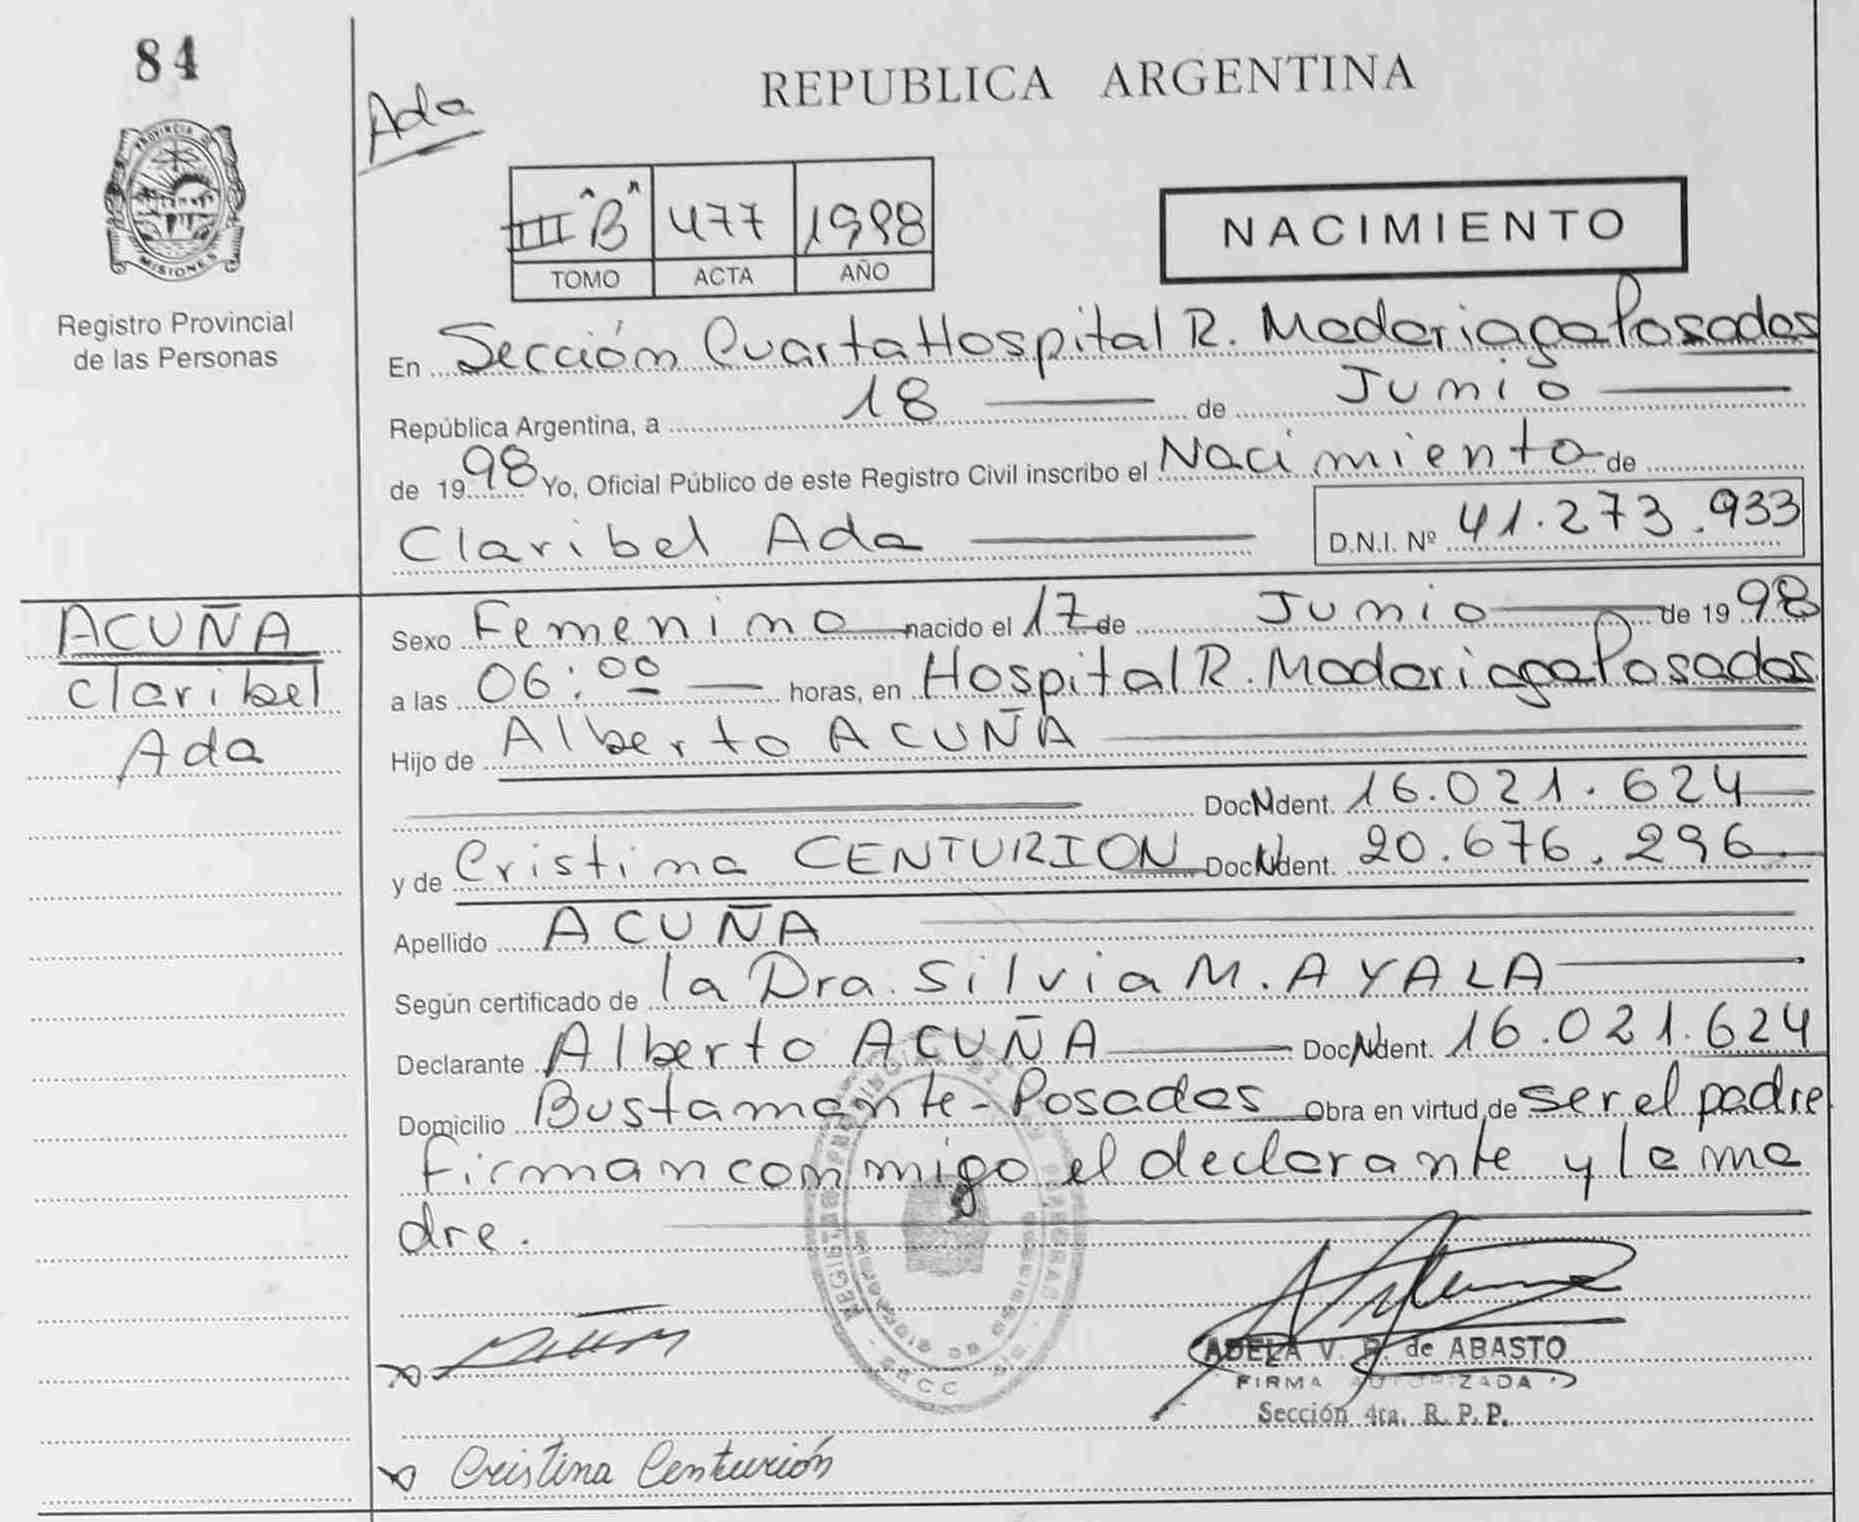 84
Ada
REPUBLICA ARGENTINA
PROVINCIA DE MISIONES
Registro Provincial
de las Personas
III "B" 477 1998
TOMO ACTA AÑO
NACIMIENTO
En Sección Cuarta Hospital R. Madariaga Posadas
República Argentina, a 18 de Junio
de 1998 Yo, Oficial Público de este Registro Civil inscribo el Nacimiento de
Claribel Ada D.N.I. Nº 41.273.933
ACUÑA
Claribel
Ada
Sexo Femenino nacido el 17 de Junio de 1998
a las 06:00 horas, en Hospital R. Madariaga Posadas
Hijo de Alberto ACUÑA
Doc. N Ident. 16.021.624
y de Cristina CENTURION Doc. N Ident. 20.676.296.
Apellido ACUÑA
Según certificado de la Dra. Silvia M. AYALA
Declarante Alberto ACUÑA Doc. N Ident. 16.021.624
Domicilio Bustamante - Posadas Obra en virtud de ser el padre
firman conmigo el declarante y la ma
dre.
ADELA V. de ABASTO
FIRMA AUTORIZADA
Sección 4ta. R. P. P.
Cristina Centurión